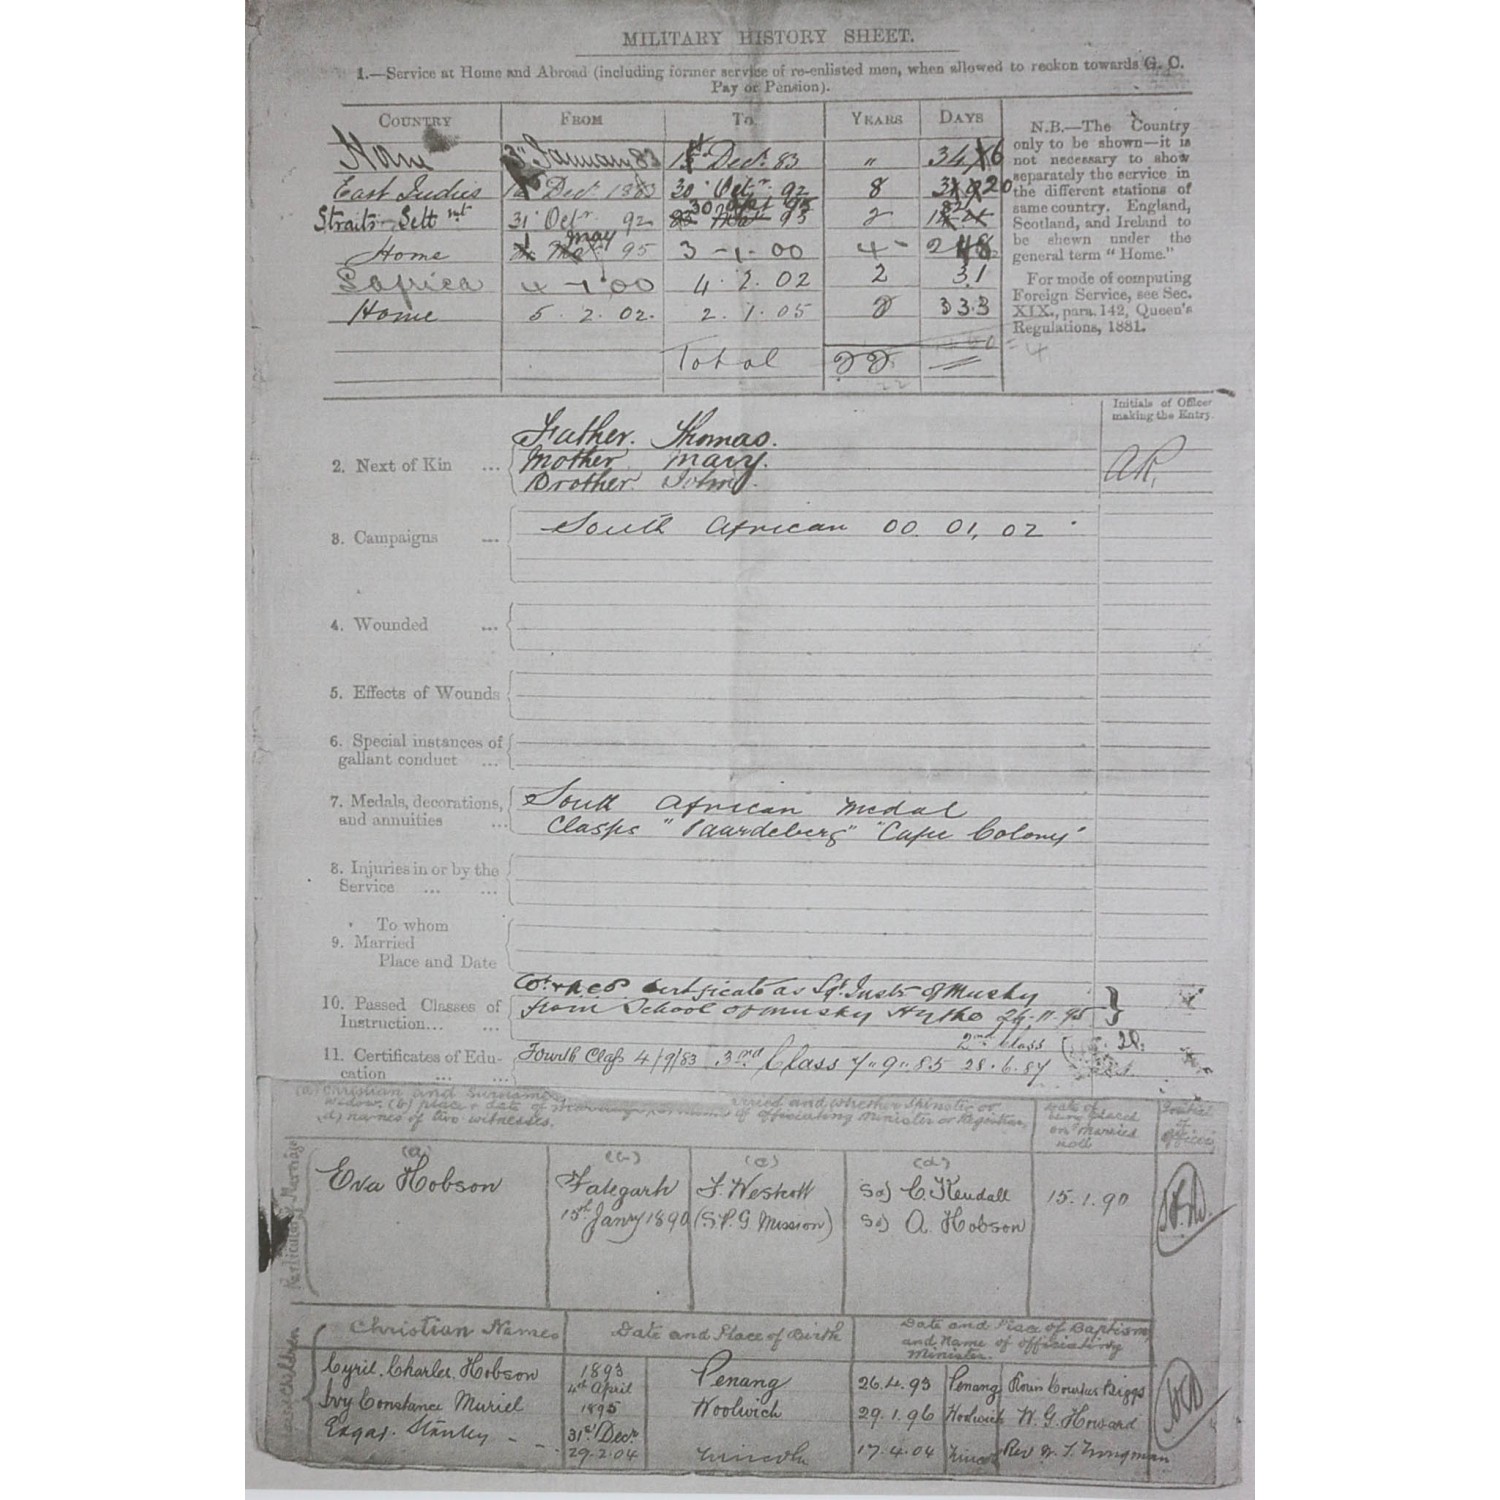 MILITARY HISTORY SHEET.
1.—Service at Home and Abroad (including former service of re-enlisted men, when allowed to reckon towards G. C.
Pay or Pension).
COUNTRY FROM To YEARS DAYS
Home January 83 Decr. 83 "
East Indies Decr 1883 30 Octr. 92 8
Straits Settmt 31 Octr. 92 2
Home May 95 3-1-00 4
S africa 4-1-00 4.2.02 2 31
Home 5.2.02. 2.1.05 2 333
Total 22
N.B.—The Country
only to be shown—it is
not necessary to show
separately the service in
the different stations of
same country. England,
Scotland, and Ireland to
be shewn under the
general term "Home."
For mode of computing
Foreign Service, see Sec.
XIX., para. 142, Queen's
Regulations, 1881.
Initials of Officer
making the Entry.
2. Next of Kin ...
Father. Thomas.
Mother Mary.
Brother John.
AR.
3. Campaigns ...
South African 00. 01, 02
4. Wounded ...
5. Effects of Wounds
6. Special instances of
gallant conduct ...
7. Medals, decorations,
and annuities ...
South African Medal
Clasps "Paardeberg" "Cape Colony"
8. Injuries in or by the
Service ... ...
To whom
9. Married
Place and Date
10. Passed Classes of
Instruction... ...
certificate as Sgt. Instr of Musky
from School of musky Hythe
11. Certificates of Edu-
cation ... ...
2nd Class
Fourth Class 4/9/83 3rd Class 7"9"85 28.6.87
(a) Christian and Surname
widow. (b) place & date of marriage of officiating Minister or Registrar,
(d) names of two witnesses.
Date of
being placed
on Married
roll
Initials
of
officer
Particulars of Marriage
(a) (b) (c) (d)
Eva Hobson Fategarh F. Westcott Sd) C. Kendall 15.1.90
15th Janry 1890 (S.P.G Mission) Sd) A. Hobson
Children
Christian Names Date and Place of Birth Date and Place of Baptism
and Name of officiating
Minister.
Cyril. Charles. Hobson 1893 4th April Penang 26.4.93 Penang Biggs
Ivy Constance Muriel 1895 31st Decr. Woolwich 29.1.96 Woolwich W. G. Howard
Edgar. Stanley 29.2.04 Lincoln 17.4.04 Rev